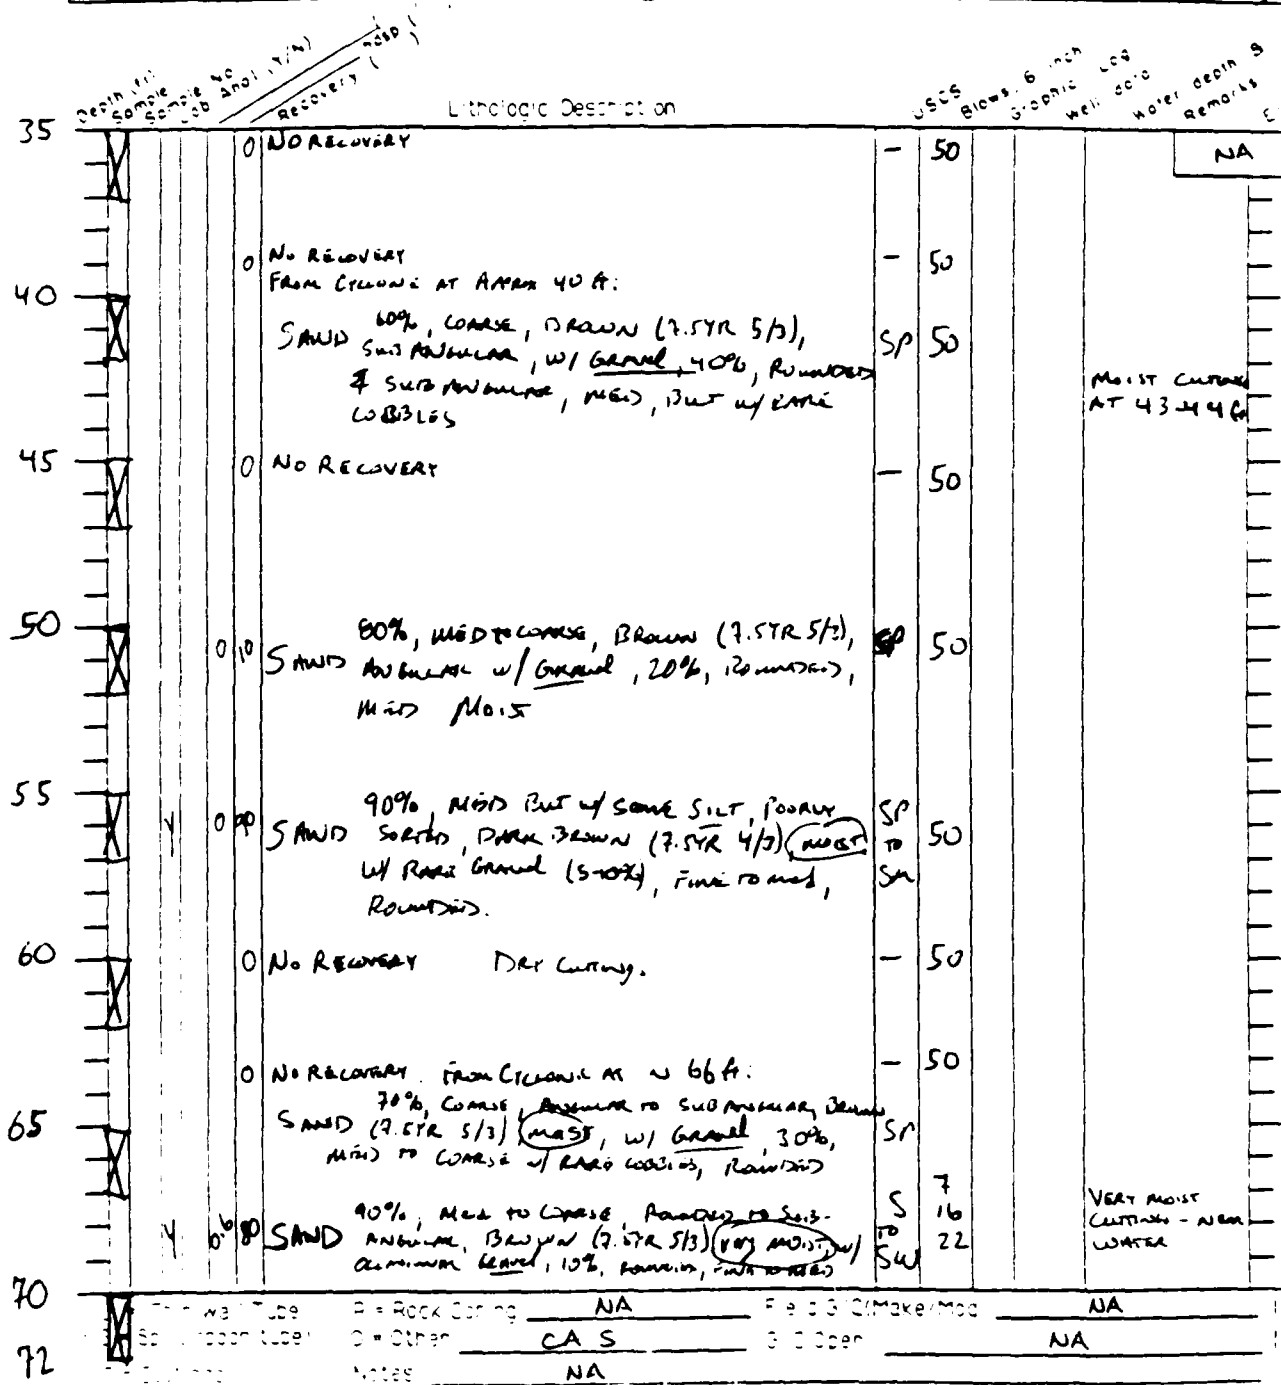 Depth (ft)
Sample
Sample No
Lab Anal (Y/N)
Recovery (
Lithologic Description
USCS
Blows, 6 inch
Graphic Log
Well data
Water depth
Remarks
35
0 NO RECOVERY - 50 NA
0 NO RECOVERY - 50
FROM CYCLONE AT APPROX 40 ft:
40
SAND 60%, COARSE, BROWN (7.5YR 5/3), SP 50
SUBANGULAR, W/ GRAVEL, 40%, ROUNDED
& SUBANGULAR, MED, BUT W/ RARE
COBBLES
MOIST CUTTINGS
AT 43-44 ft
45
0 NO RECOVERY - 50
50
0 10 SAND 80%, MED TO COARSE, BROWN (7.5YR 5/3), SP 50
ANGULAR W/ GRAVEL, 20%, ROUNDED,
MED MOIST
55
Y 0 SAND 90%, MED BUT W/ SOME SILT, POORLY SP TO SM 50
SORTED, DARK BROWN (7.5YR 4/3) MOIST
W/ RARE GRAVEL (5-10%), FINE TO MED,
ROUNDED.
60
0 NO RECOVERY DRY CUTTING. - 50
0 NO RECOVERY. FROM CYCLONE AT ~ 66 ft: - 50
65
SAND 70%, COARSE, ANGULAR TO SUBANGULAR, BROWN SP
(7.5YR 5/3) MOIST, W/ GRAVEL, 30%,
MED TO COARSE W/ RARE COBBLES, ROUNDED
Y 0.6 80 SAND 90%, MED TO COARSE, ROUNDED TO SUB- S TO SW 7 16 22
ANGULAR, BROWN (7.5YR 5/3) VERY MOIST, W/
GRAVEL, 10%, ROUNDED, FINE TO MED
VERY MOIST
CUTTINGS - NEAR
WATER
70
Thin Wall Tube R = Rock Coring NA NA
Split Spoon (tube) O = Other CA S NA
72
Notes NA